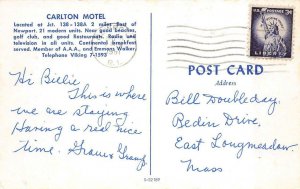 CARLTON MOTEL
Located at Jct. 138 - 138A 2 miles East of
Newport. 21 modern units. Near good beaches,
golf club, and good Restaurants. Radio and
television in all units. Continental breakfast
served. Member of A.A.A., and Emmons Walker.
Telephone Viking 7-1593
Hi Billie
This is where
we are staying.
Having a real nice
time.
POST CARD
Address
Bill Doubleday,
Bedin Drive,
East Longmeadow
Mass
U.S. POSTAGE 3¢
LIBERTY
R.I.